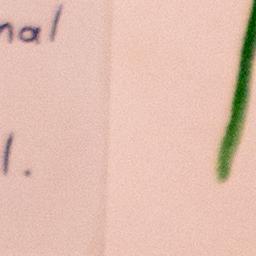 nal
l.